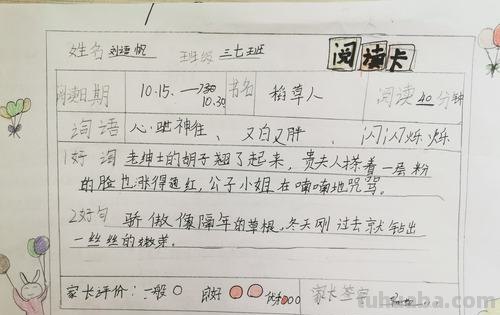 姓名 刘恒帆 班级 三七班 阅读卡
阅读日期 10.15.—10.30 书名 稻草人 阅读40分钟
词语 心驰神往、又白又胖、闪闪烁烁
1好词 老绅士的胡子翘了起来,贵夫人搽着一层粉
的脸也涨得通红,公子小姐在喃喃地咒骂。
2好句 骄傲像隔年的草根,冬天刚过去就钻出
一丝丝的嫩芽。
家长评价:一般〇 良好〇〇 优〇〇〇 家长签字
tuhuaba.com